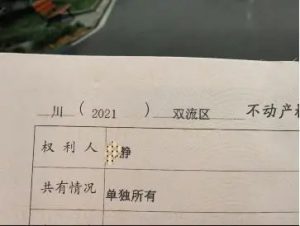 川（2021）双流区 不动产权
权利人 静
共有情况 单独所有